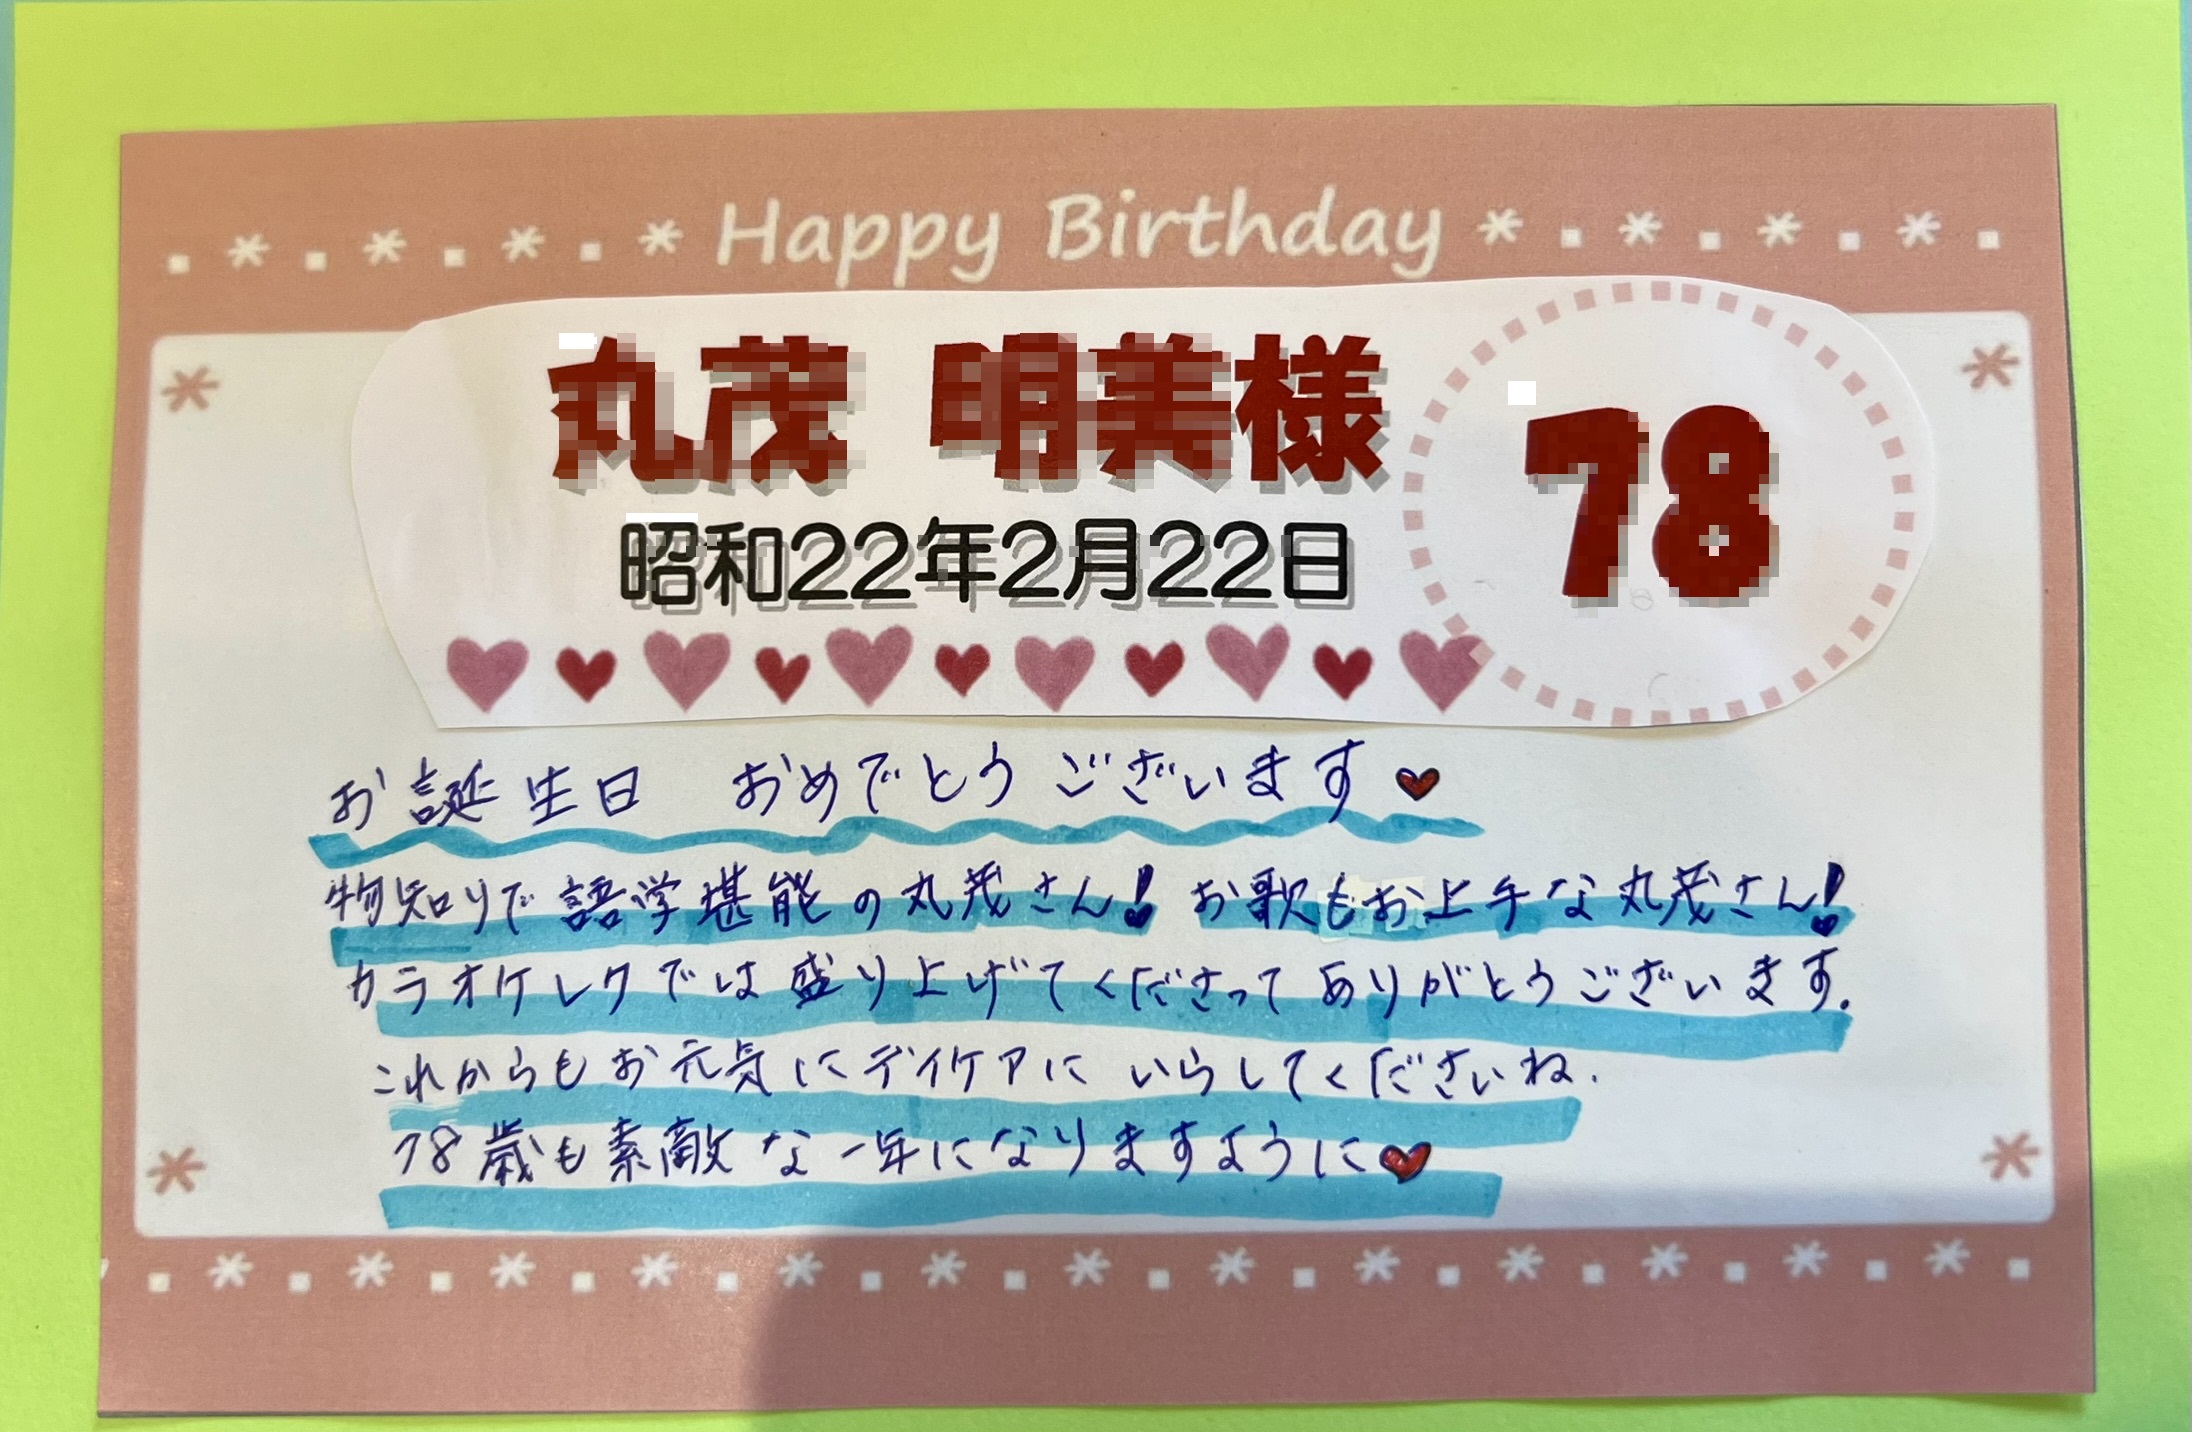 Happy Birthday
丸茂 明美様
78
昭和22年2月22日
お誕生日 おめでとうございます
物知りで語学堪能の丸茂さん! お歌もお上手な丸茂さん!
カラオケレクでは盛り上げてくださってありがとうございます。
これからもお元気にデイケアにいらしてくださいね.
78歳も素敵な一年になりますように